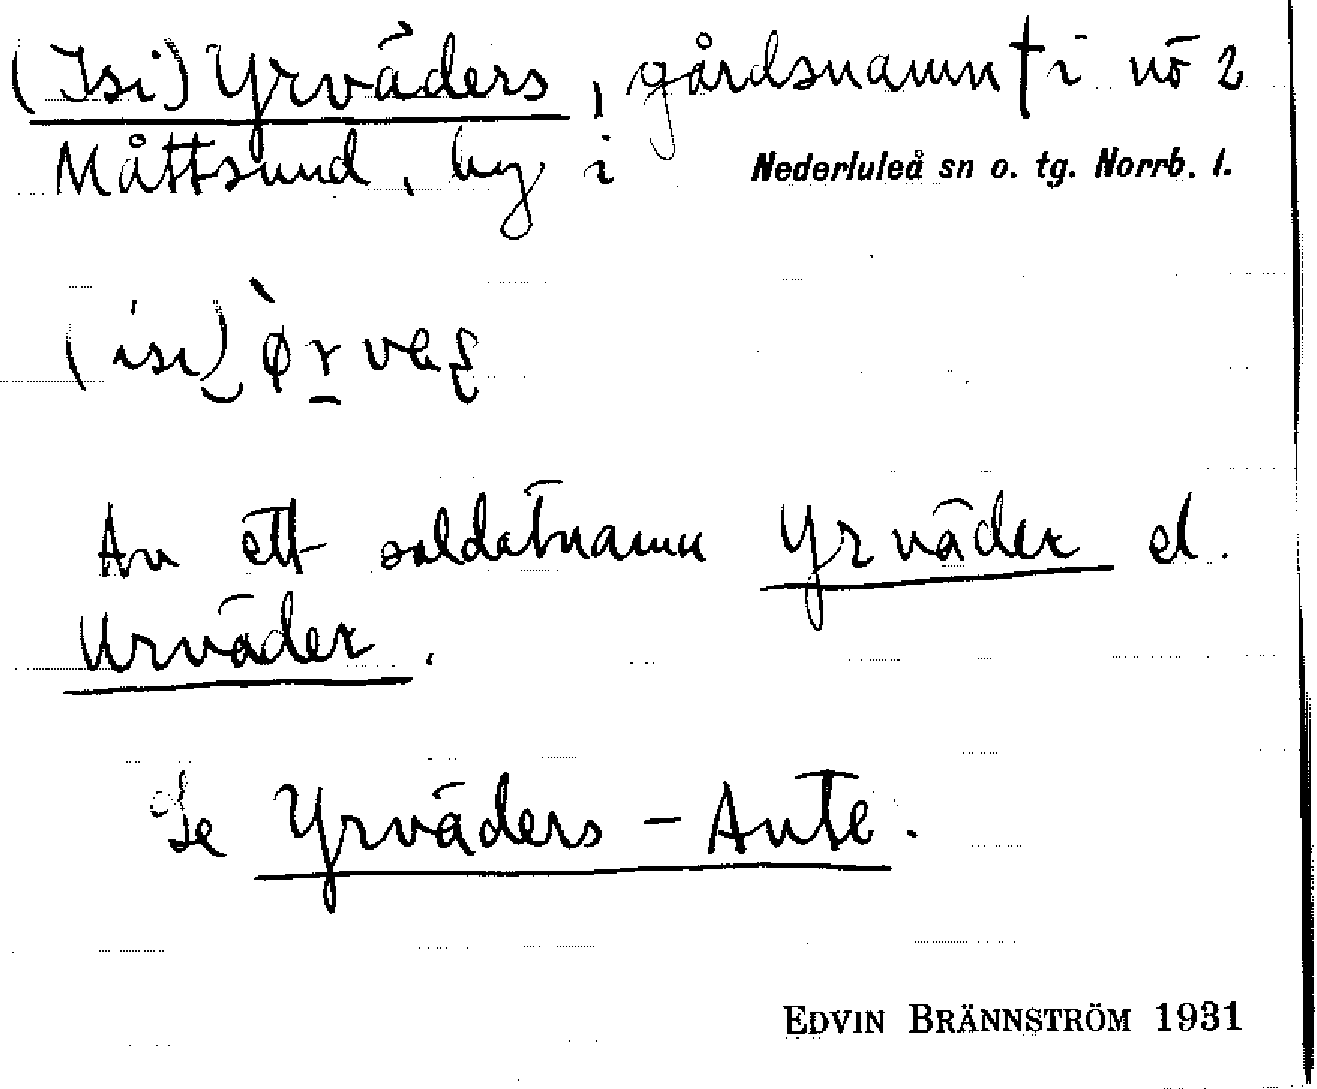 (Isi) Yrväders, gårdsnamn † i nö 2
Måttsund, by i Nederluleå sn o. tg. Norrb. l.
(isi)
Av ett soldatnamn Yrväder el.
Urväder.
Se Yrväders-Ante.
EDVIN BRÄNNSTRÖM 1931